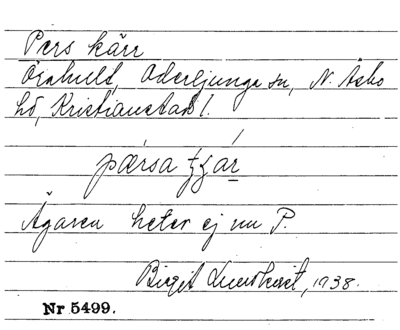 Pers kärr
Örahult, Oderljunga sn, N. Åsbo
hd, Kristianstads l.
pærsa
Ägaren heter ej nu P.
Birgit 1938.
Nr 5499.